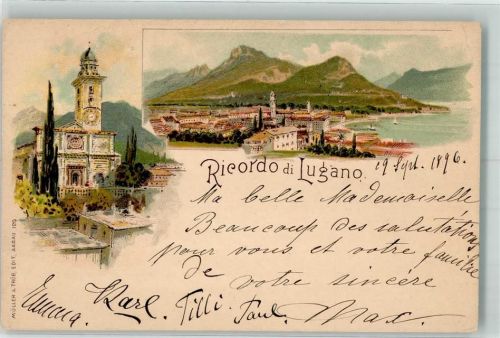 Ricordo di Lugano.
19 Sept. 1896.
Ma belle Mademoiselle
Beaucoup des salutations
pour vous et votre familie
de votre sincère
Emma. Karl. Tilli. Paul. Max.
MÜLLER & TRÜB, EDIT. AARAU. 129